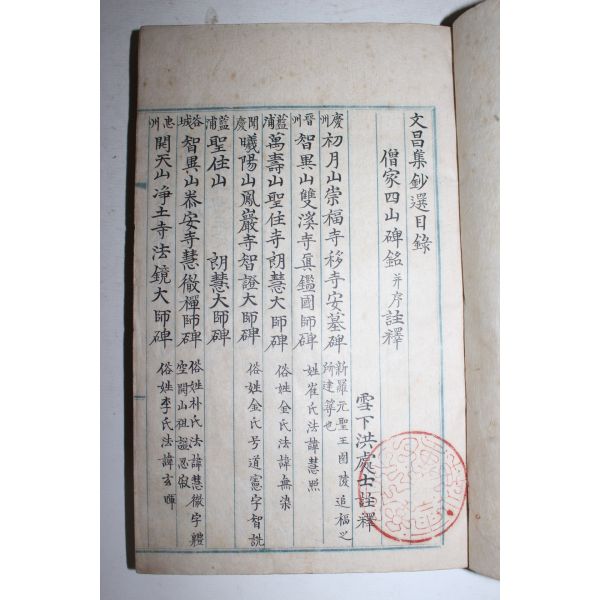 文昌集鈔選目錄
僧家四山碑銘并序註釋
雪下洪處士註釋
慶州 初月山崇福寺移寺安墓碑 新羅元聖王園陵追福之所建等也
晉州 智異山雙溪寺眞鑑國師碑 姓崔氏法諱慧照
藍浦 萬壽山聖住寺朗慧大師碑 俗姓金氏法諱無染
聞慶 曦陽山鳳巖寺智證大師碑 俗姓金氏号道憲字智詵
藍浦 聖住山 朗慧大師碑
谷城 智異山泰安寺慧徹禪師碑 俗姓朴氏法諱慧徹字體空開山祖謚忍寂
忠州 開天山淨土寺法鏡大師碑 俗姓李氏法諱玄暉